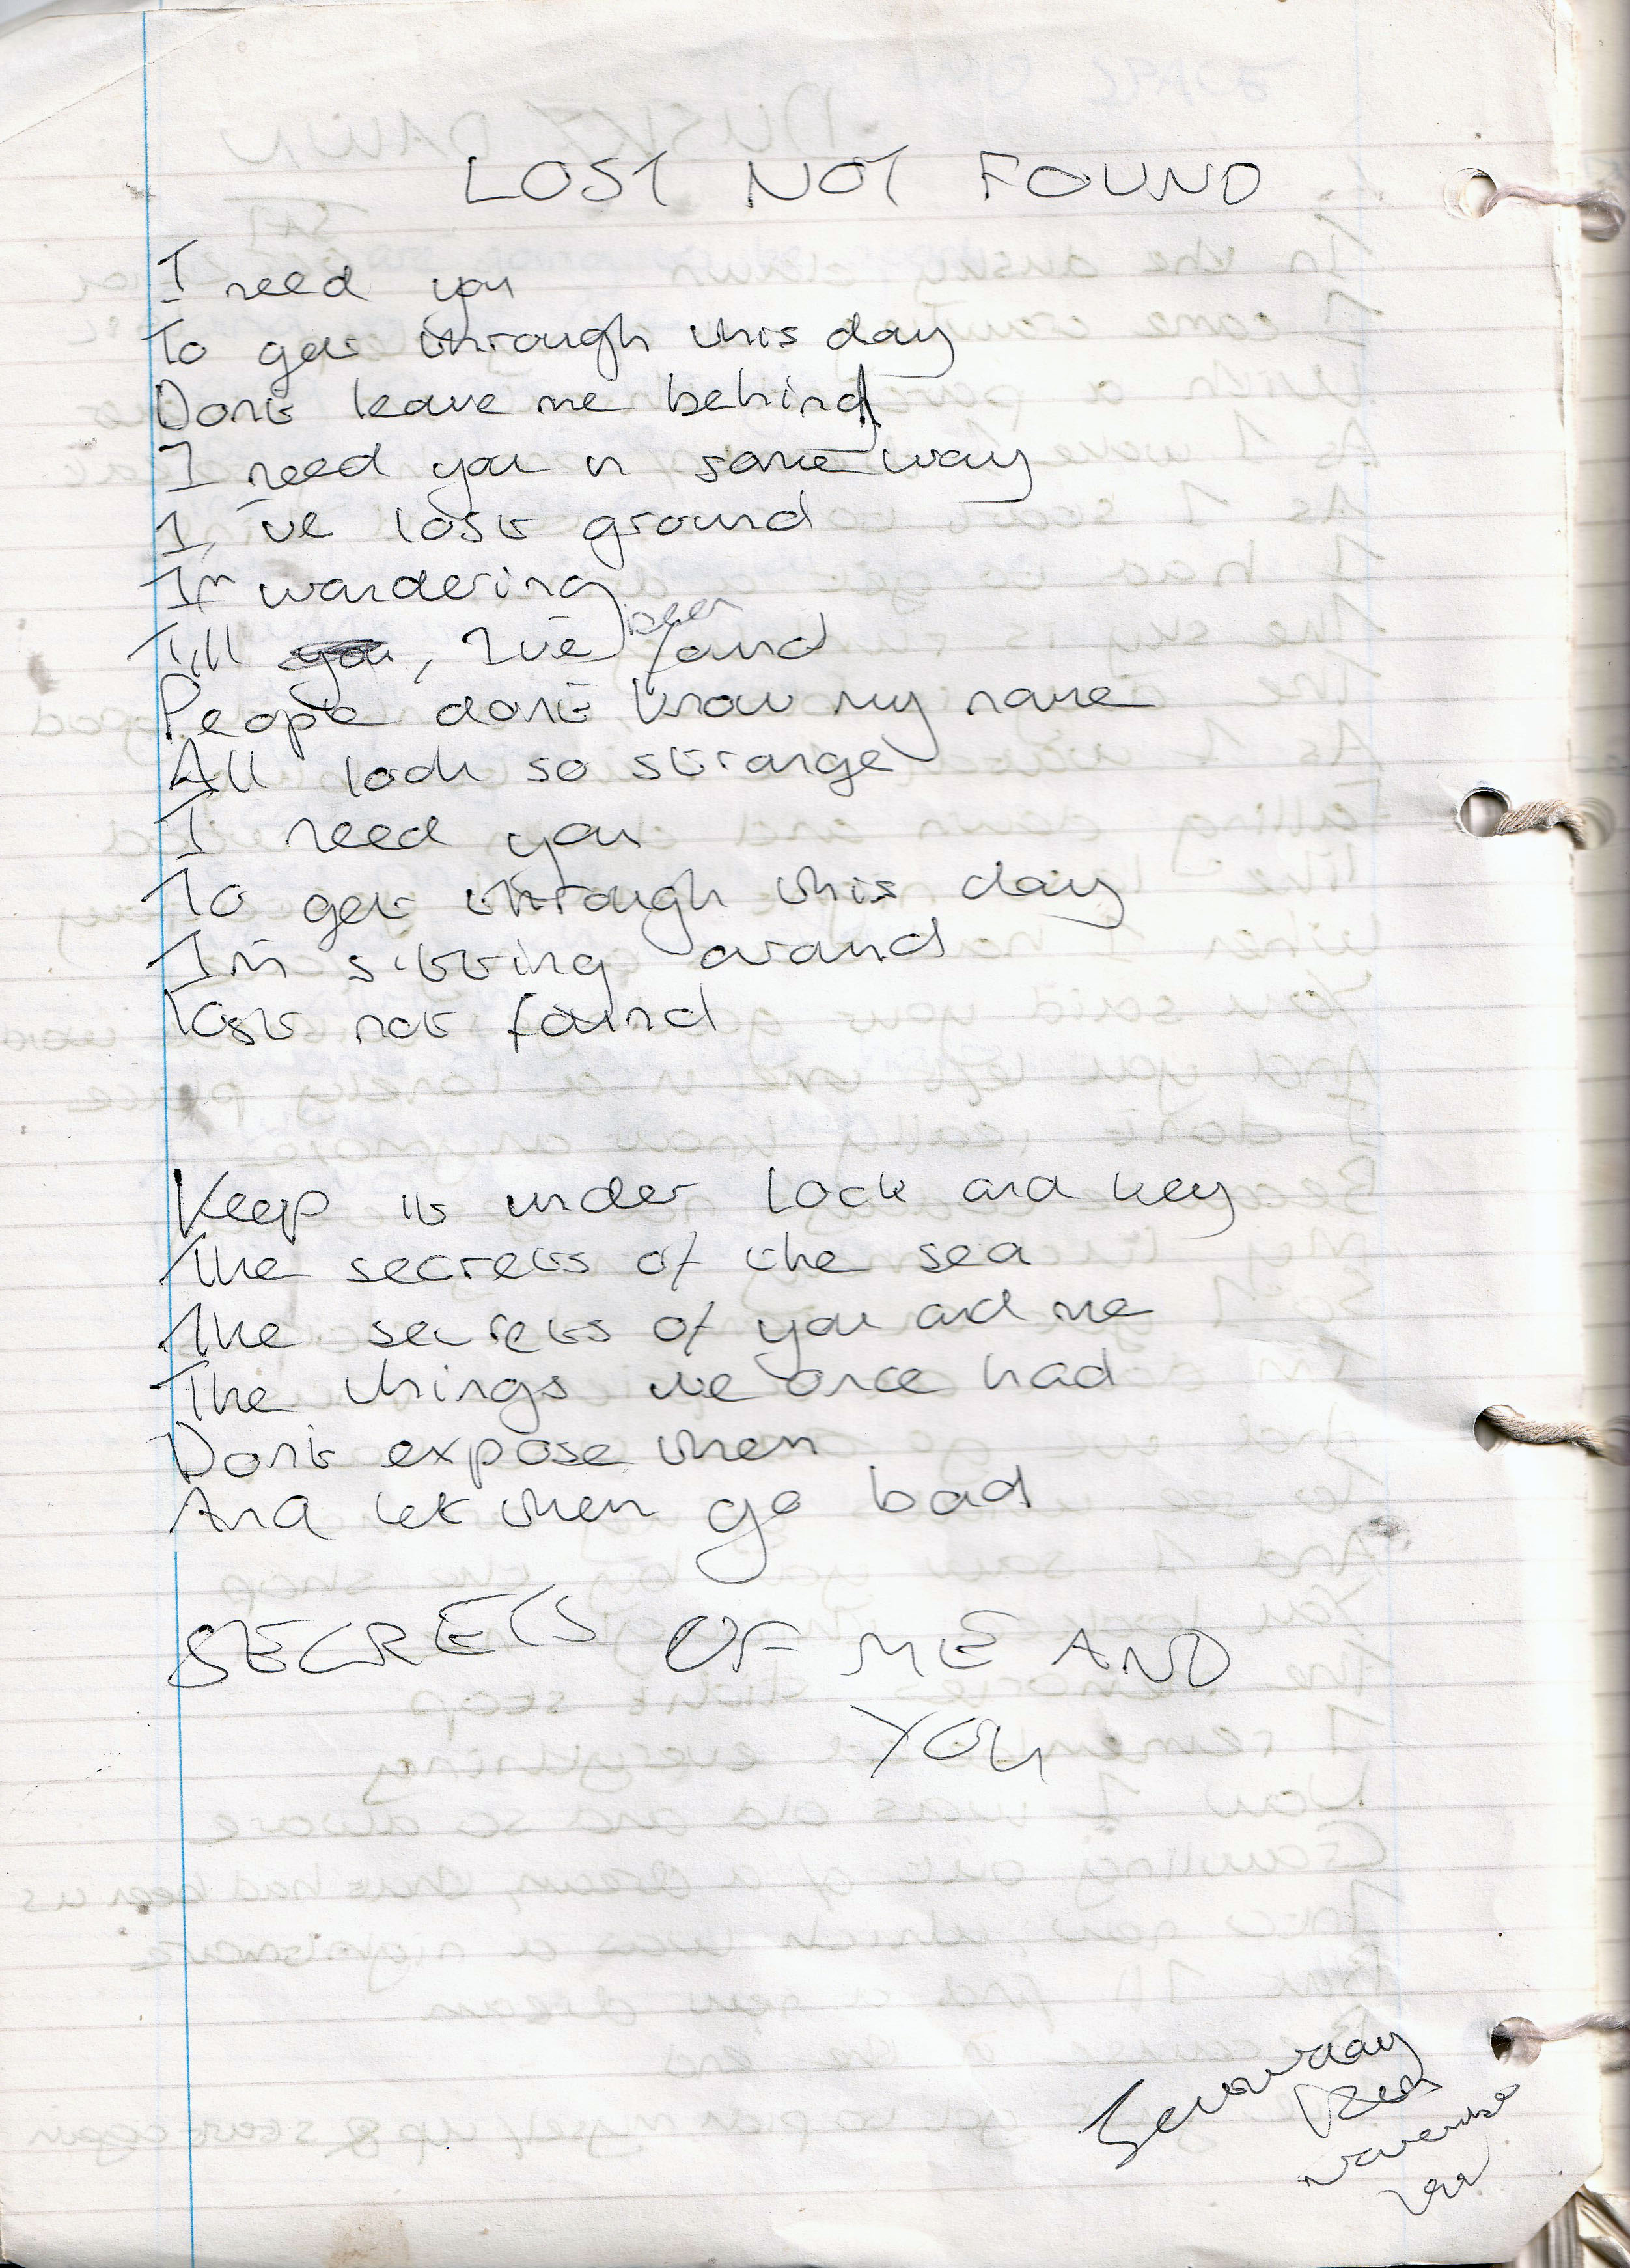 LOST NOT FOUND
I need you
To get through this day
Dont leave me behind
I need you in some way
I've lost ground
I'm wandering
Till you, I've been found
People don't know my name
All look so strange
I need you
To get through this day
I'm sitting around
Lost not found
Keep it under lock and key
The secrets of the sea
The secrets of you and me
The things we once had
Don't expose them
And let them go bad
SECRETS OF ME AND
YOU
Saturday
November